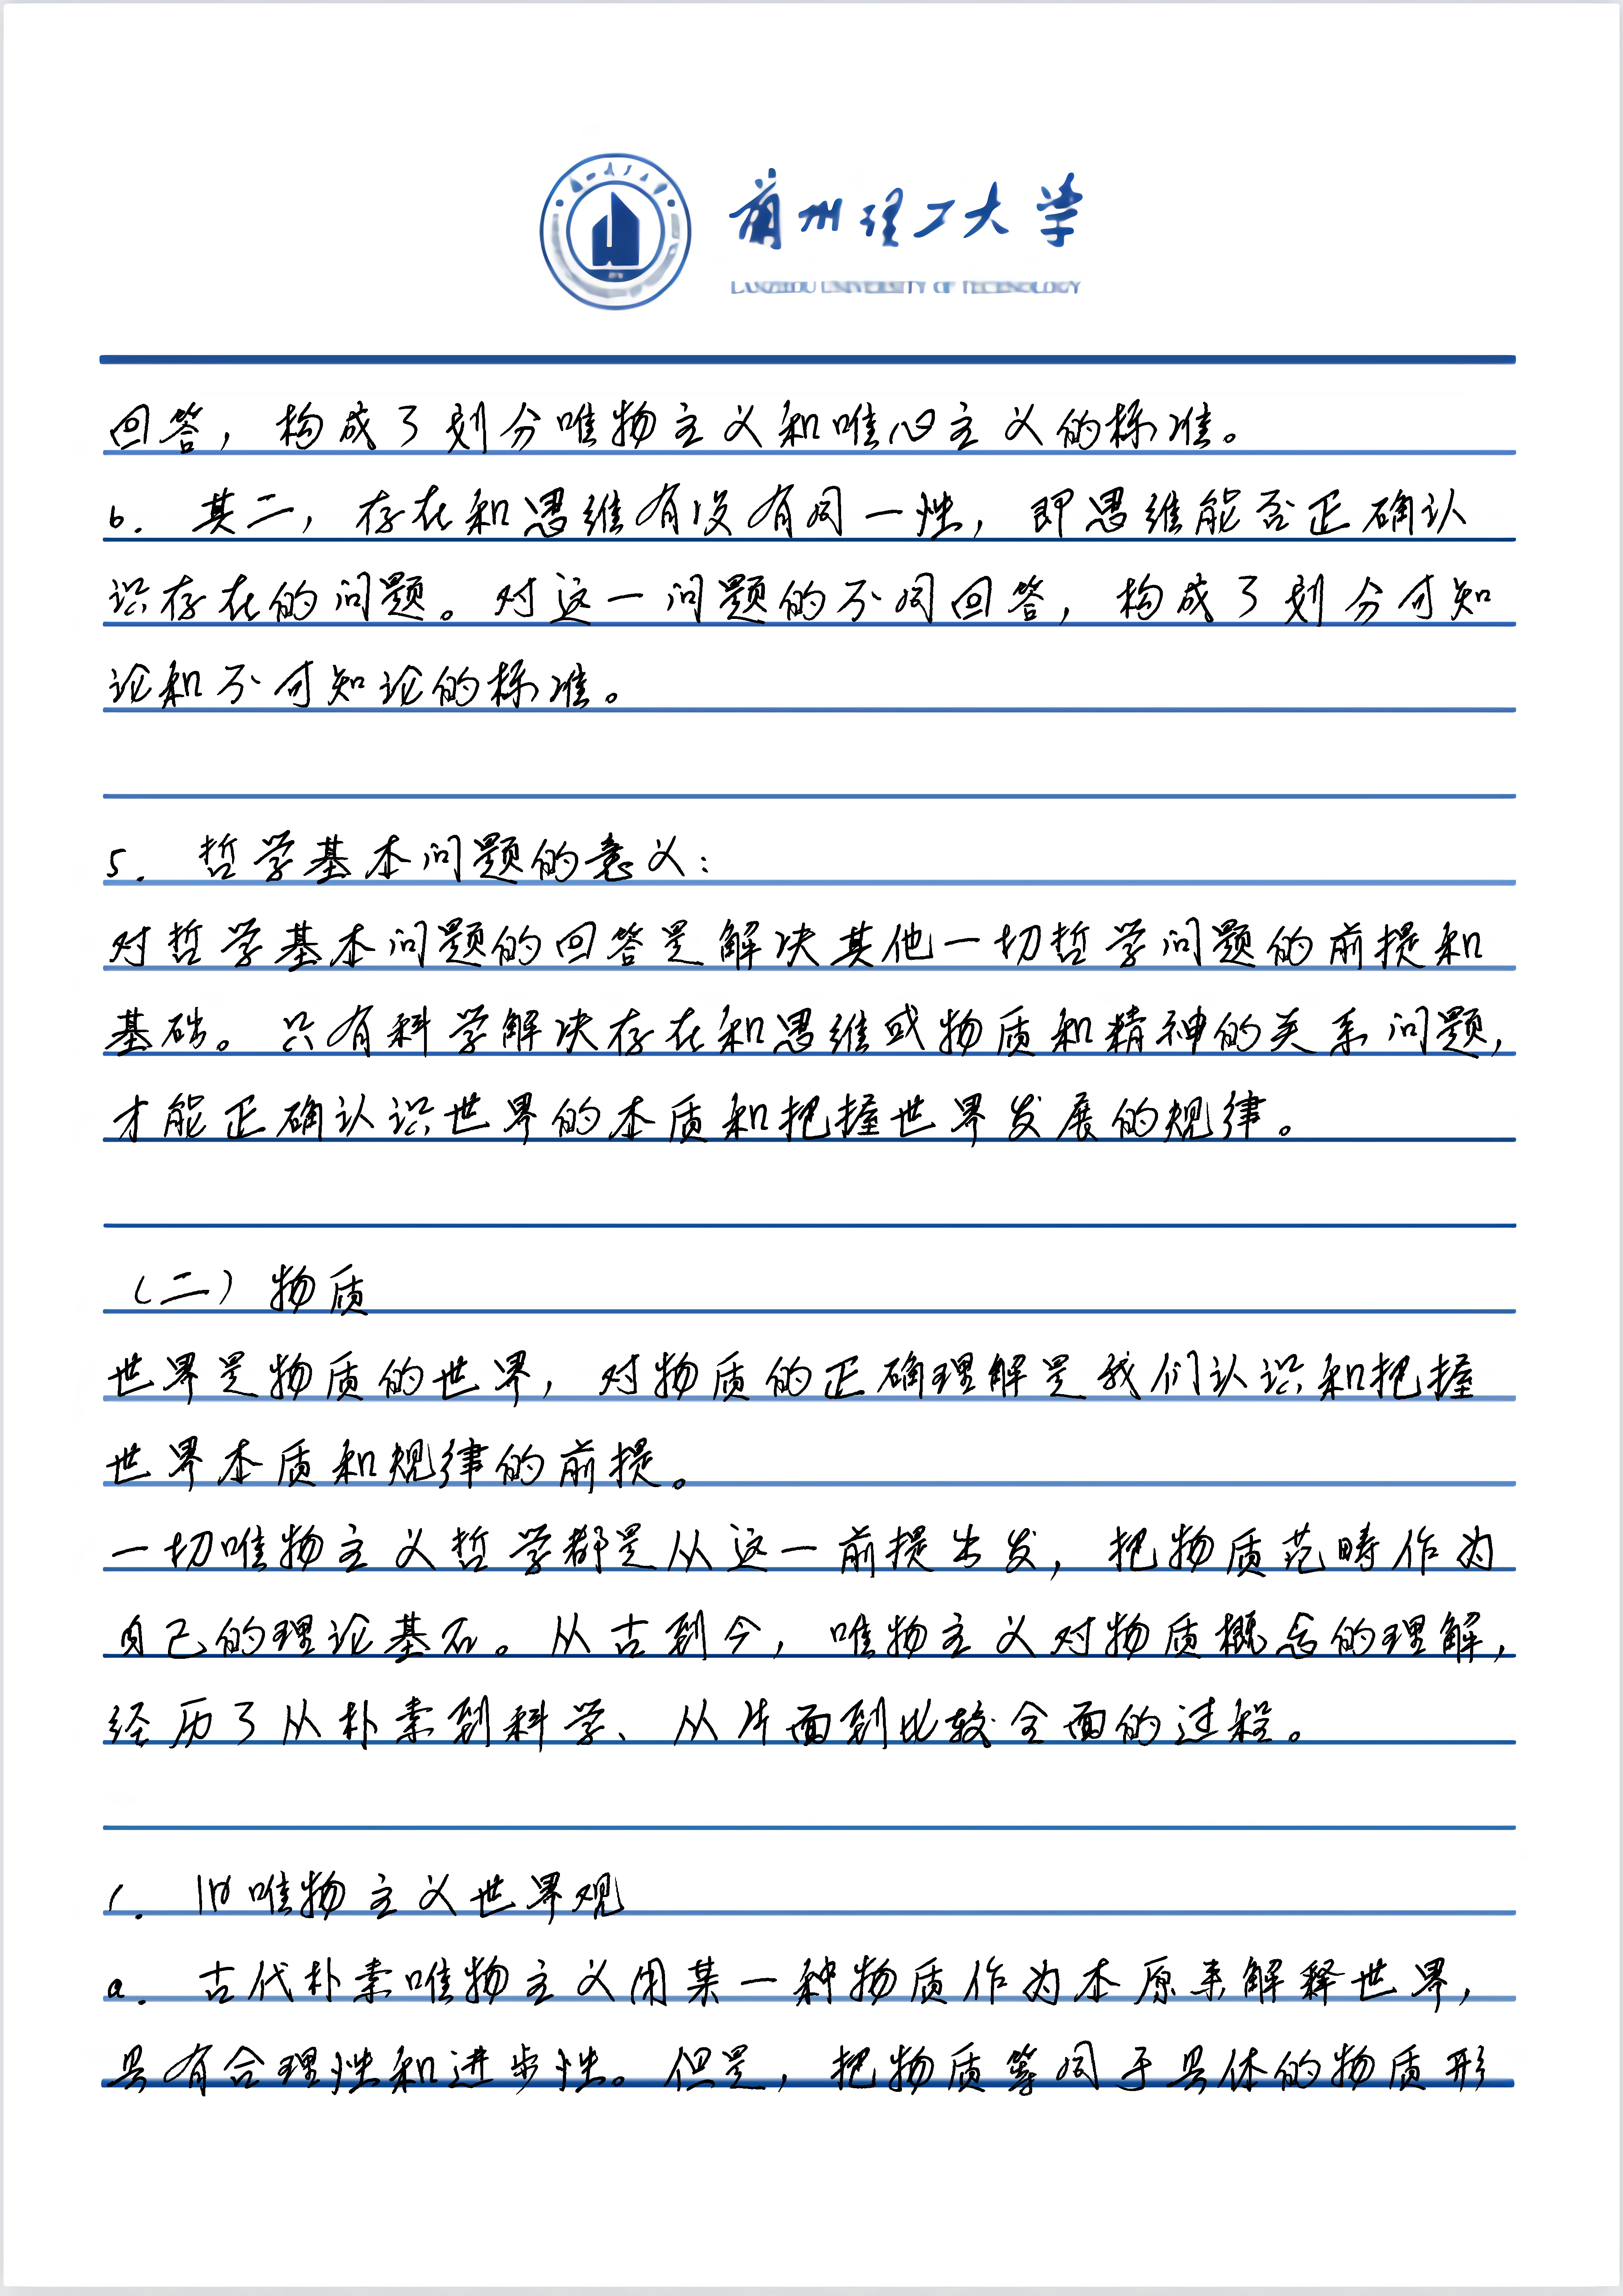 蘭州理工大学
LANZHOU UNIVERSITY OF TECHNOLOGY
回答，构成了划分唯物主义和唯心主义的标准。
b. 其二，存在和思维有没有同一性，即思维能否正确认
识存在的问题。对这一问题的不同回答，构成了划分可知
论和不可知论的标准。
5. 哲学基本问题的意义：
对哲学基本问题的回答是解决其他一切哲学问题的前提和
基础。只有科学解决存在和思维或物质和精神的关系问题，
才能正确认识世界的本质和把握世界发展的规律。
（二）物质
世界是物质的世界，对物质的正确理解是我们认识和把握
世界本质和规律的前提。
一切唯物主义哲学都是从这一前提出发，把物质范畴作为
自己的理论基石。从古到今，唯物主义对物质概念的理解，
经历了从朴素到科学、从片面到比较全面的过程。
1. 旧唯物主义世界观
a. 古代朴素唯物主义用某一种物质作为本原来解释世界，
具有合理性和进步性。但是，把物质等同于具体的物质形